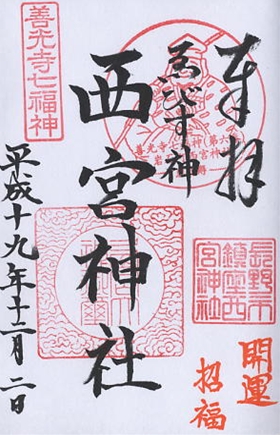 奉拝
ゑびす神
西宮神社
平成十九年十二月二日
善光寺七福神
長野市
鎮座西
宮神社
開運
招福